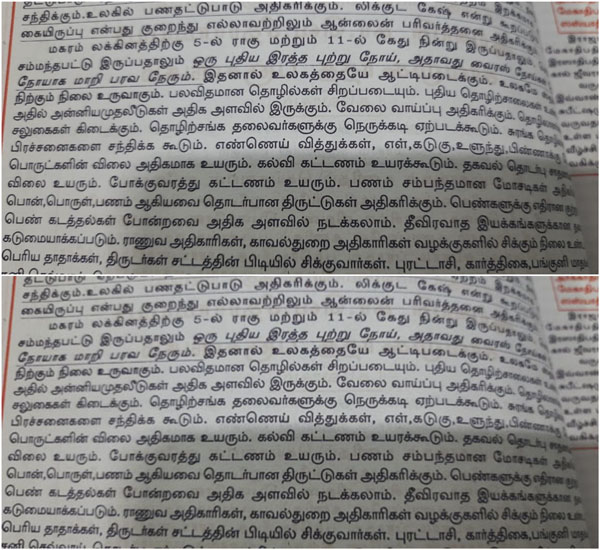 சந்திக்கும்.உலகில் பணதட்டுபாடு அதிகரிக்கும். லிக்குட் கேஷ் என்று
கையிருப்பு என்பது குறைந்து எல்லாவற்றிலும் ஆன்லைன் பரிவர்த்தனை
மகரம் லக்கினத்திற்கு 5-ல் ராகு மற்றும் 11-ல் கேது நின்று இருப்பதும்
சம்மந்தபட்டு இருப்பதாலும் ஒரு புதிய இரத்த புற்று நோய், அதாவது வைரஸ்
நோயாக மாறி பரவ நேரும். இதனால் உலகத்தையே ஆட்டிபடைக்கும். உலகமே
நிற்கும் நிலை உருவாகும். பலவிதமான தொழில்கள் சிறப்படையும். புதிய தொழிற்சாலைகள்
அதில் அன்னியமுதலீடுகள் அதிக அளவில் இருக்கும். வேலை வாய்ப்பு அதிகரிக்கும்.
சலுகைகள் கிடைக்கும். தொழிற்சங்க தலைவர்களுக்கு நெருக்கடி ஏற்படக்கூடும். சுரங்க
பிரச்சனைகளை சந்திக்க கூடும். எண்ணெய் வித்துக்கள், எள்,கடுகு,உளுந்து,பிண்ணாக்கு
பொருட்களின் விலை அதிகமாக உயரும். கல்வி கட்டணம் உயரக்கூடும். தகவல் தொடர்பு
விலை உயரும். போக்குவரத்து கட்டணம் உயரும். பணம் சம்பந்தமான மோசடிகள்
பொன்,பொருள்,பணம் ஆகியவை தொடர்பான திருட்டுகள் அதிகரிக்கும். பெண்களுக்கு எதிரான
பெண் கடத்தல்கள் போன்றவை அதிக அளவில் நடக்கலாம். தீவிரவாத இயக்கங்களுக்கான
கடுமையாக்கப்படும். ராணுவ அதிகாரிகள், காவல்துறை அதிகாரிகள் வழக்குகளில் சிக்கும் நிலை
பெரிய தாதாக்கள், திருடர்கள் சட்டத்தின் பிடியில் சிக்குவார்கள். புரட்டாசி, கார்த்திகை,பங்குனி
சந்திக்கும்.உலகில் பணதட்டுபாடு அதிகரிக்கும். லிக்குட் கேஷ் என்று
கையிருப்பு என்பது குறைந்து எல்லாவற்றிலும் ஆன்லைன் பரிவர்த்தனை
மகரம் லக்கினத்திற்கு 5-ல் ராகு மற்றும் 11-ல் கேது நின்று இருப்பதும்
சம்மந்தபட்டு இருப்பதாலும் ஒரு புதிய இரத்த புற்று நோய், அதாவது வைரஸ்
நோயாக மாறி பரவ நேரும். இதனால் உலகத்தையே ஆட்டிபடைக்கும். உலகமே
நிற்கும் நிலை உருவாகும். பலவிதமான தொழில்கள் சிறப்படையும். புதிய தொழிற்சாலைகள்
அதில் அன்னியமுதலீடுகள் அதிக அளவில் இருக்கும். வேலை வாய்ப்பு அதிகரிக்கும்.
சலுகைகள் கிடைக்கும். தொழிற்சங்க தலைவர்களுக்கு நெருக்கடி ஏற்படக்கூடும். சுரங்க
பிரச்சனைகளை சந்திக்க கூடும். எண்ணெய் வித்துக்கள், எள்,கடுகு,உளுந்து,பிண்ணாக்கு
பொருட்களின் விலை அதிகமாக உயரும். கல்வி கட்டணம் உயரக்கூடும். தகவல் தொடர்பு
விலை உயரும். போக்குவரத்து கட்டணம் உயரும். பணம் சம்பந்தமான மோசடிகள்
பொன்,பொருள்,பணம் ஆகியவை தொடர்பான திருட்டுகள் அதிகரிக்கும். பெண்களுக்கு எதிரான
பெண் கடத்தல்கள் போன்றவை அதிக அளவில் நடக்கலாம். தீவிரவாத இயக்கங்களுக்கான
கடுமையாக்கப்படும். ராணுவ அதிகாரிகள், காவல்துறை அதிகாரிகள் வழக்குகளில் சிக்கும் நிலை
பெரிய தாதாக்கள், திருடர்கள் சட்டத்தின் பிடியில் சிக்குவார்கள். புரட்டாசி, கார்த்திகை,பங்குனி